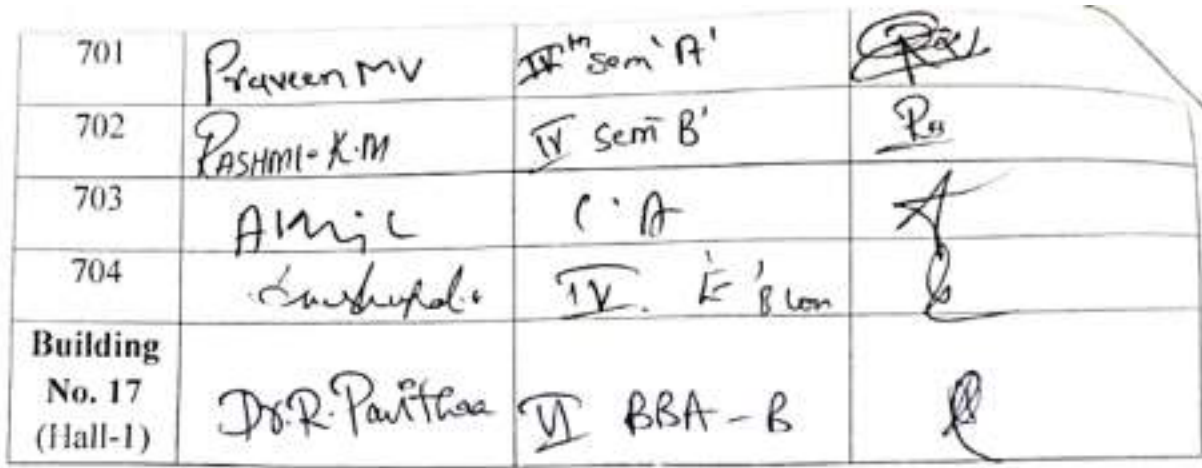 701 Praveen MV IVth Sem 'A'
702 RASHMI-K.M IV Sem 'B'
703 Akhil C A
704 IV. 'E' B Com
Building
No. 17
(Hall-1) Dr.R.Pavithra VI BBA - B